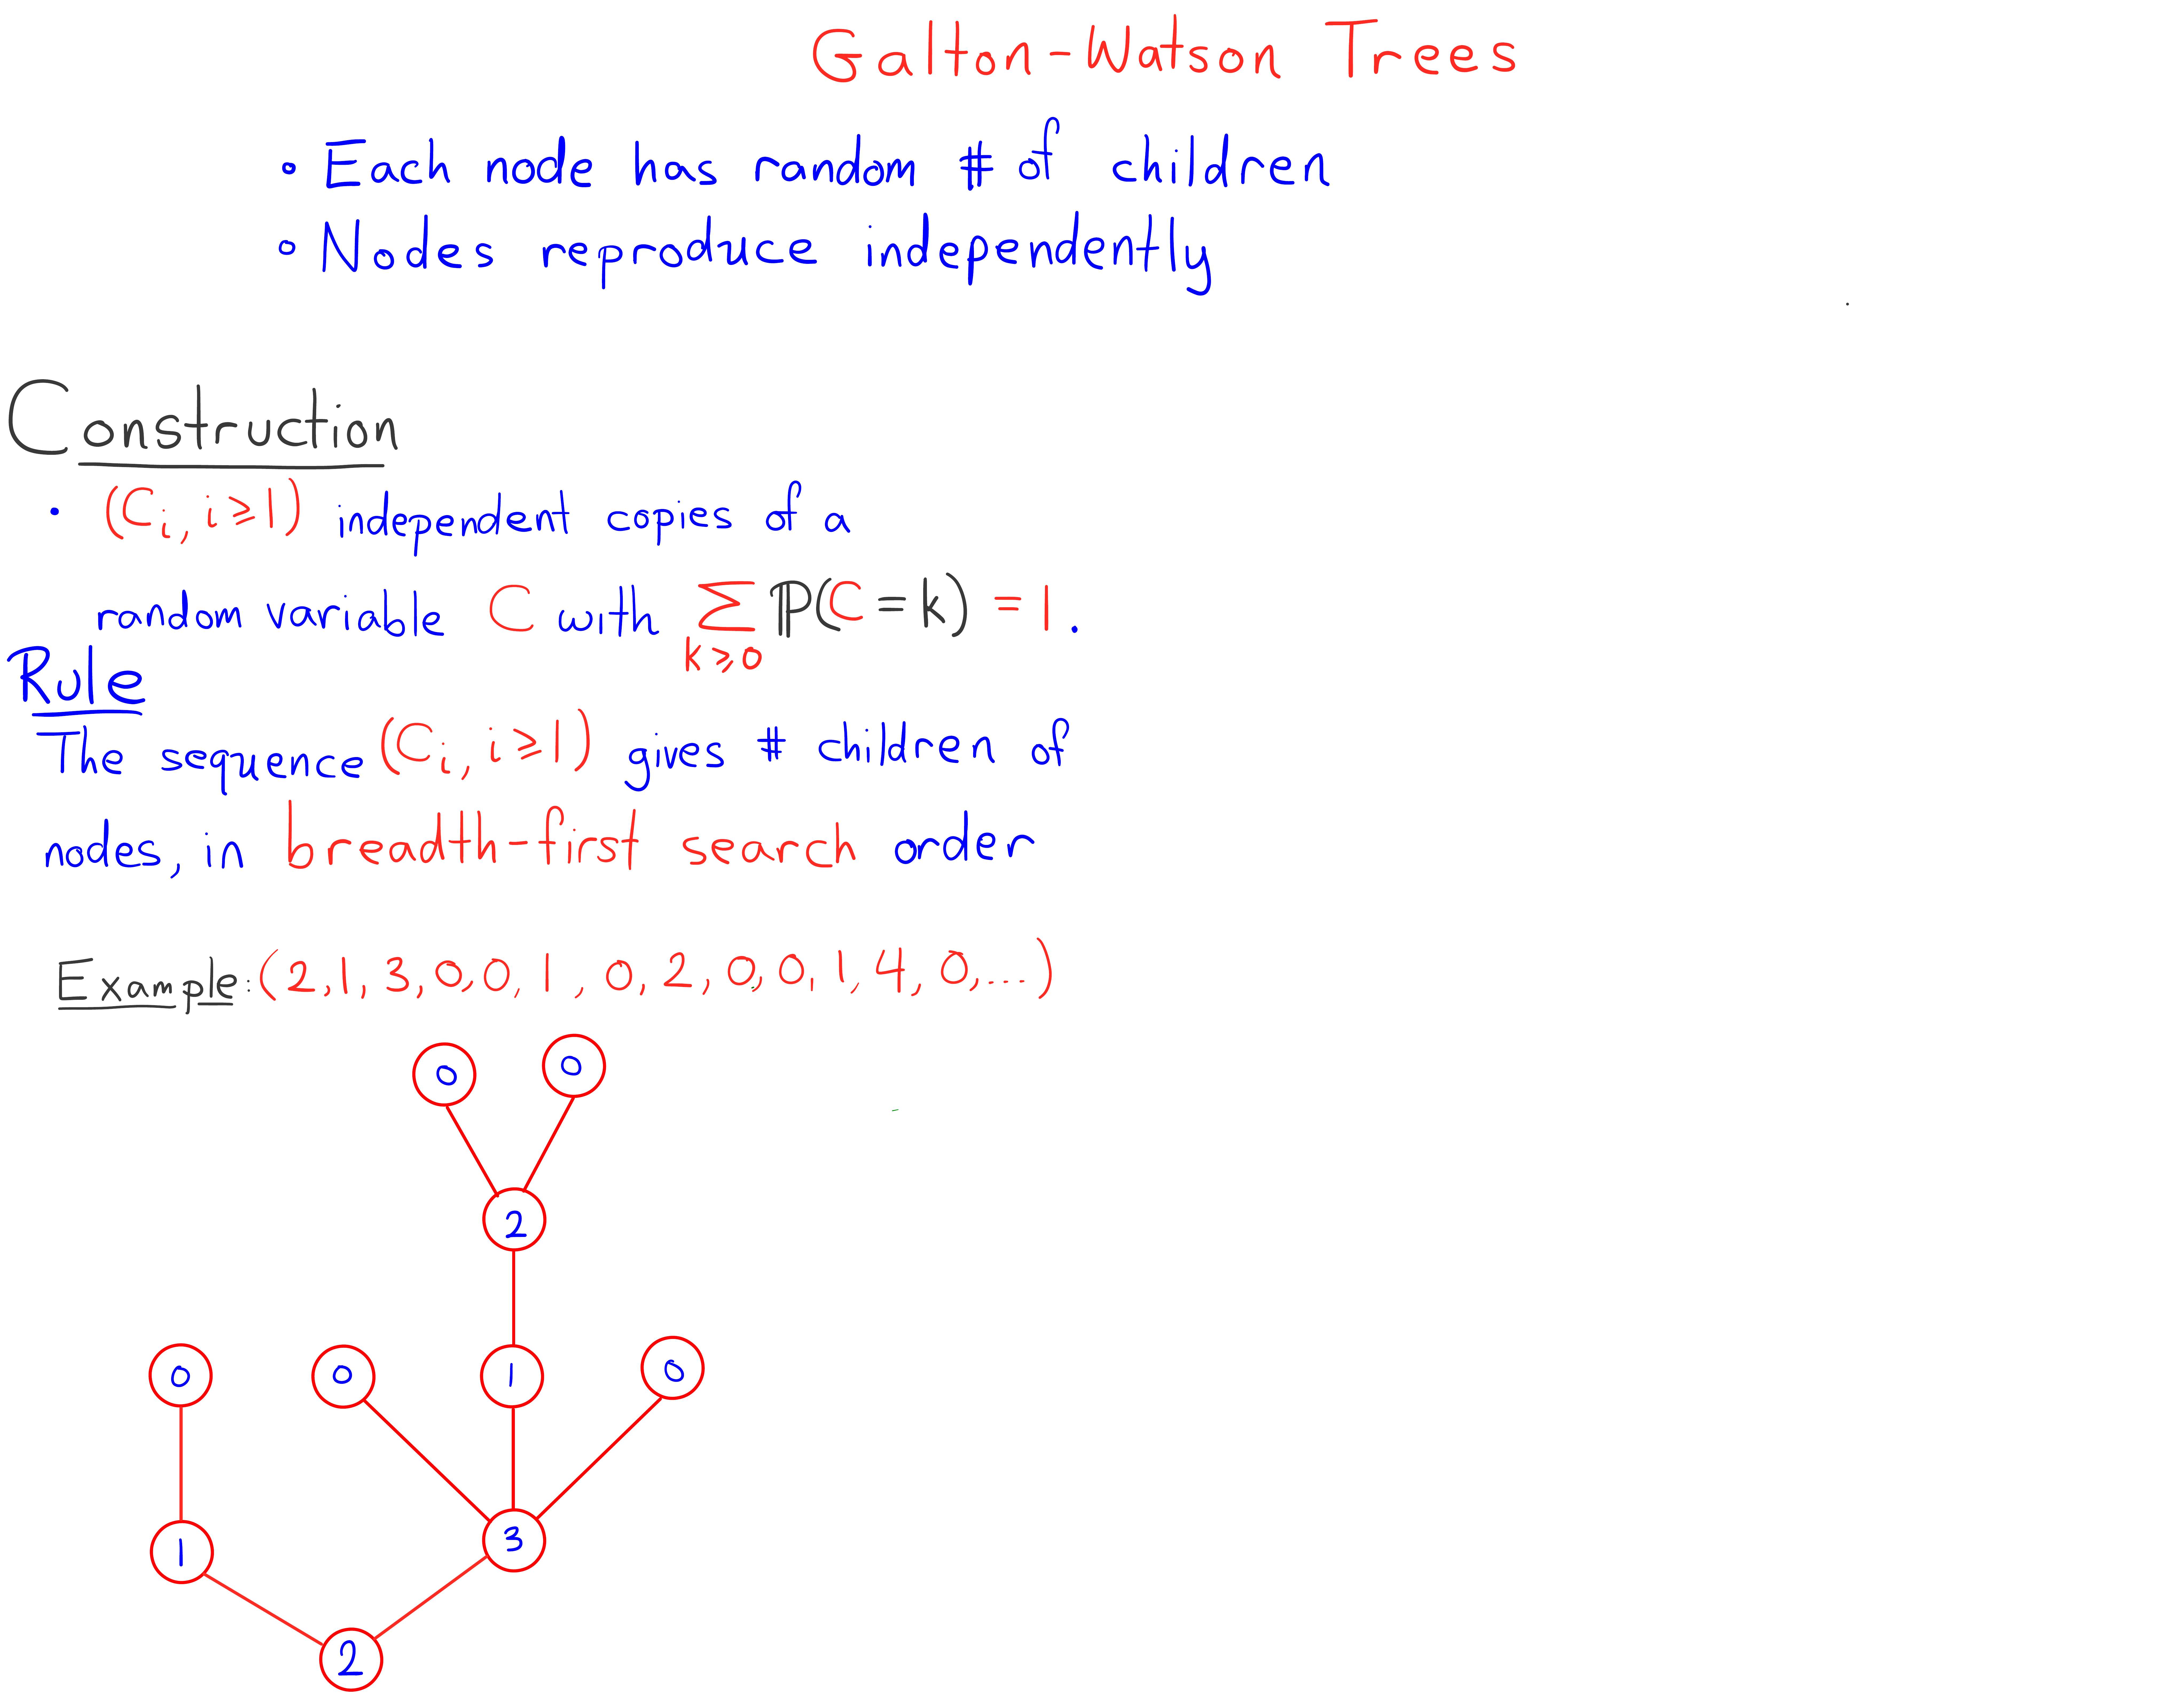 Galton-Watson Trees
• Each node has random # of children
• Nodes reproduce independently
Construction
• (Cᵢ, i≥1) independent copies of a
random variable C with ∑ P(C=k) = 1.
k≥0
Rule
The sequence (Cᵢ, i≥1) gives # children of
nodes, in breadth-first search order
Example: (2,1,3,0,0,1,0,2,0,0,1,4,0,...)
0 0
2
0 0 1 0
1 3
2